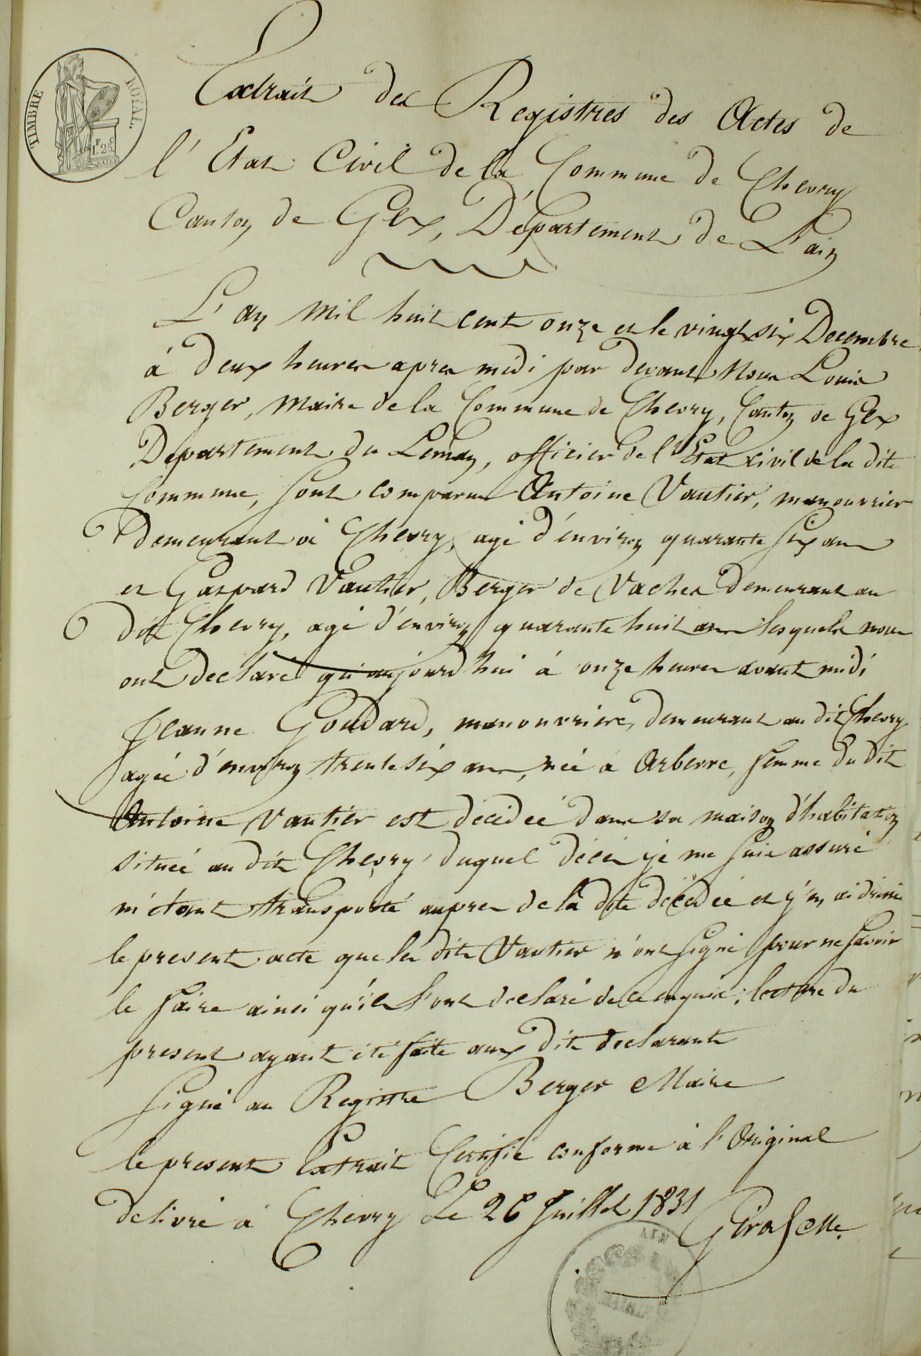 TIMBRE ROYAL.
Extrait des Registres des Actes de
l'Etat Civil de la Commune de Chevry
Canton de Gex, Département de L'ain
L'an mil huit cent onze et le vingt six Decembre
à deux heures apres midi par devant Nous Louis
Berger, Maire de la Commune de Chevry, Canton de Gex
Departement du Leman, officier de l'Etat civil de la dite
Commune, sont comparus Antoine Vautier, manouvrier
demeurant à Chevry, agé d'environ quarante six ans
et Gaspard Vautier, Berger de Vaches demeurant au
dit Chevry, agé d'environ quarante huit ans lesquels nous
ont declaré qu'aujourd'hui à onze heures avant midi
Jeanne Goudard, manouvriere, demeurant au dit Chevry
agée d'environ trente six ans, née à Arberre, femme du dit
Antoine Vautier est décédée dans sa maison d'habitation
située au dit Chevry, duquel décès je me suis assuré
m'étant transporté aupres de la dite décédée et j'en ai dréssé
le present acte que les dits Vautier n'ont signé pour ne savoir
le faire ainsi qu'ils l'ont declaré de ce enquis; lecture du
present ayant été faite aux dits declarants
Signé au Registre Berger Maire
le present Extrait Certifié conforme à l'Original
delivré à Chevry Le 26 Juillet 1831
AIN
MAIRIE